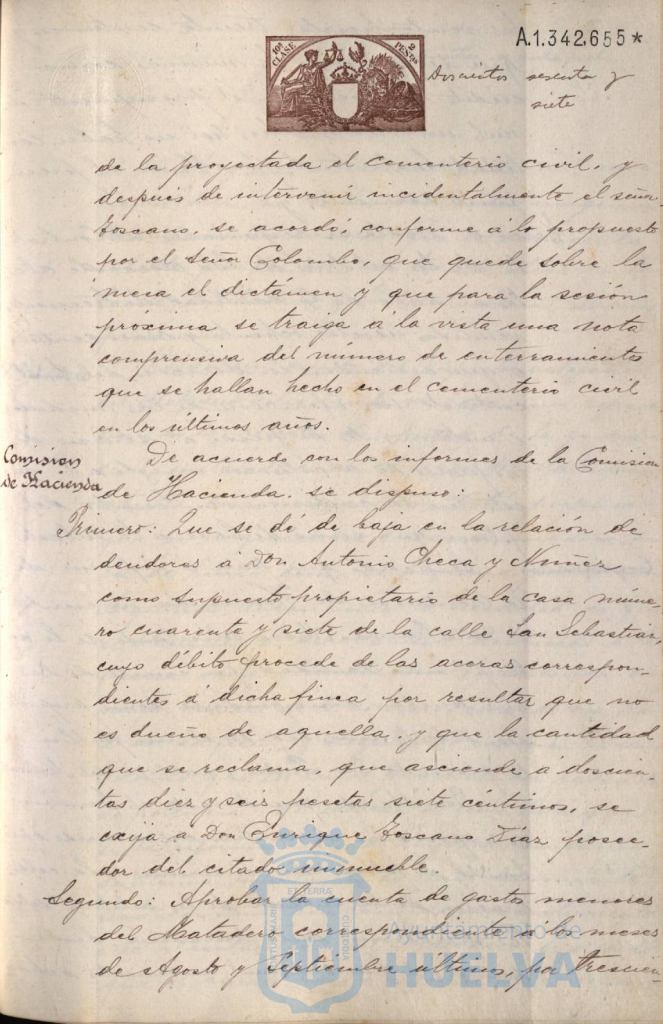 A.1.342.655*
10ª CLASE
2 PESETAS
Doscientos sesenta y
siete
de la proyectada el cementerio civil, y
después de intervenir incidentalmente el señor
Toscano, se acordó, conforme á lo propuesto
por el Señor Colombo, que quede sobre la
mesa el dictámen y que para la sesión
próxima se traiga á la vista una nota
comprensiva del número de enterramientos
que se hallan hecho en el cementerio civil
en los últimos años.
Comision
de Hacienda
De acuerdo con los informes de la Comision
de Hacienda, se dispuso:
Primero: Que se dé de baja en la relación de
deudores á Don Antonio Checa y Nuñez
como supuesto propietario de la casa núme-
ro cuarenta y siete de la calle San Sebastian,
cuyo débito procede de las aceras correspon-
dientes á dicha finca por resultar que no
es dueño de aquella, y que la cantidad
que se reclama, que asciende á doscien-
tas diez y seis pesetas siete céntimos, se
exija á Don Enrique Toscano Diaz posee-
dor del citado inmueble.
Segundo: Aprobar la cuenta de gastos menores
del Matadero correspondiente á los meses
de Agosto y Septiembre últimos, por trescien-
Ayuntamiento de
HUELVA